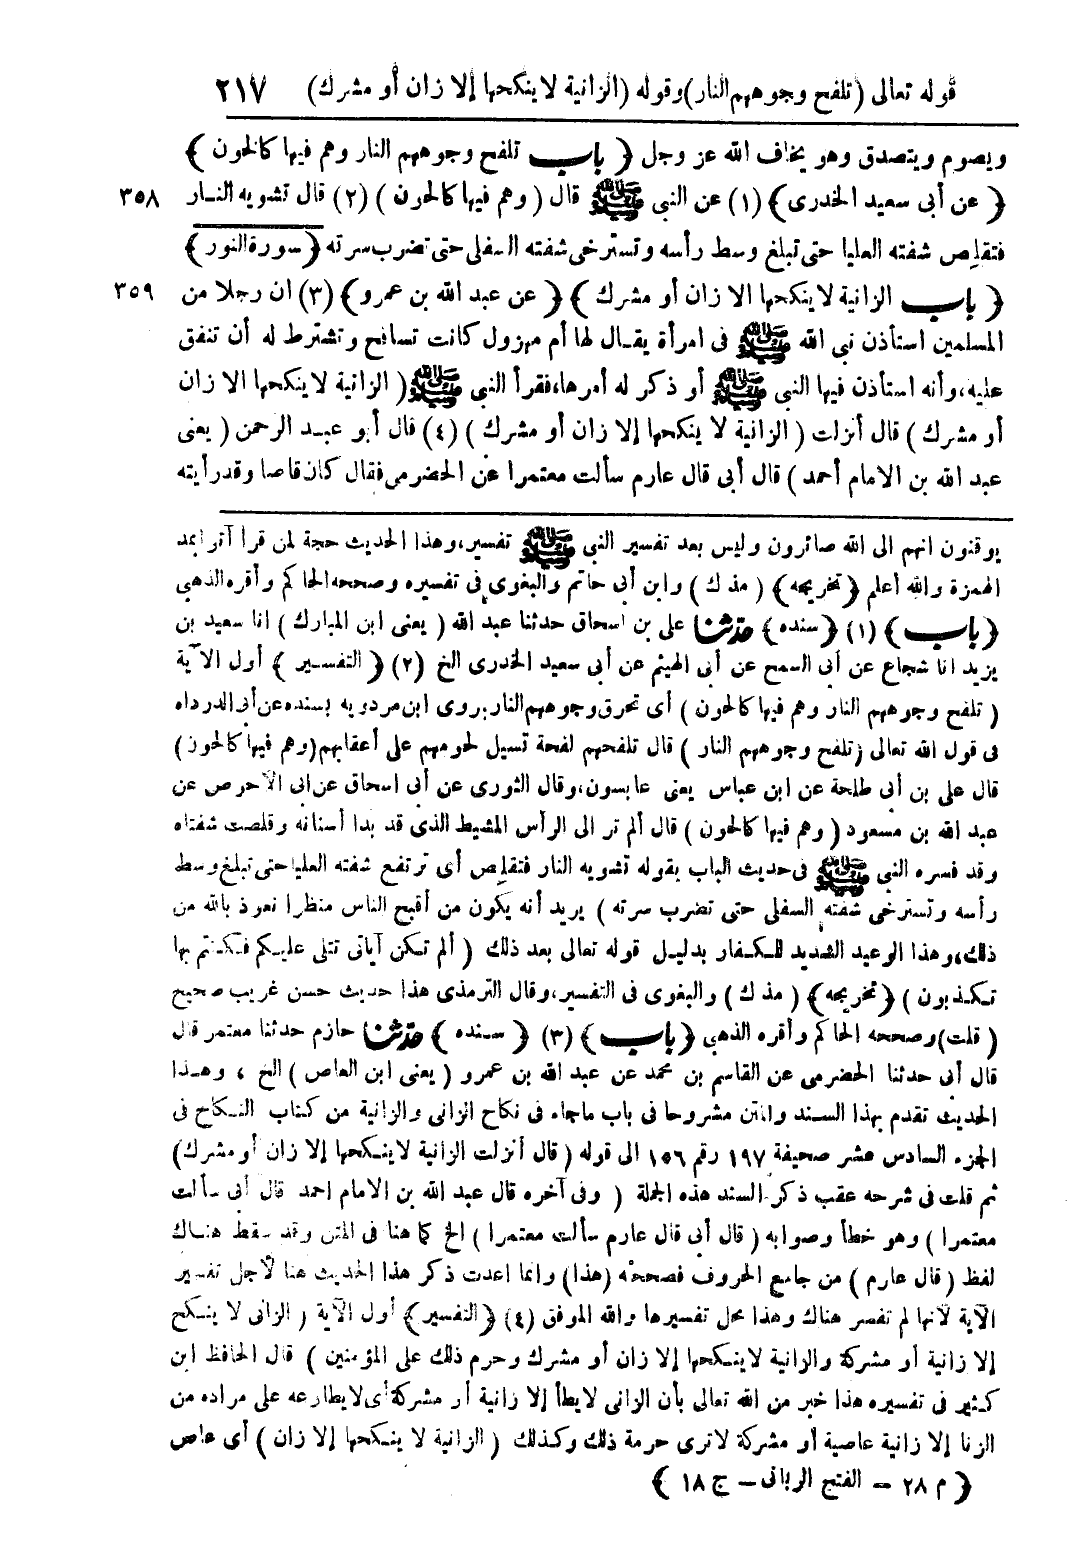 قوله تعالى (تلفح وجوههم النار) وقوله (الزانية لا ينكحها إلا زان أو مشرك) ٢١٧
ويصوم ويتصدق وهو يخاف الله عز وجل ﴿ باب تلفح وجوههم النار وهم فيها كالحون ﴾
﴿ عن أبى سعيد الخدرى ﴾ (١) عن النبى ﷺ قال ( وهم فيها كالحون ) (٢) قال تشويه النار ٣٥٨
فتقلص شفته العليا حتى تبلغ وسط رأسه وتسترخى شفته السفلى حتى تضرب سرته ﴿ سورة النور ﴾
﴿ باب الزانية لا ينكحها الا زان أو مشرك ﴾ ﴿ عن عبد الله بن عمرو ﴾ (٣) ان رجلا من ٣٥٩
المسلمين استأذن نبى الله ﷺ فى امرأة يقال لها أم مهزول كانت تسافح وتشترط له أن تنفق
عليه، وأنه استأذن فيها النبى ﷺ أو ذكر له أمرها، فقرأ النبى ﷺ ( الزانية لا ينكحها الا زان
أو مشرك ) قال أنزلت ( الزانية لا ينكحها إلا زان أو مشرك ) (٤) قال أبو عبد الرحمن ( يعنى
عبد الله بن الامام أحمد ) قال أبى قال عارم سألت معتمرا عن الحضرمى فقال كان قاصا وقد رأيته
يوقنون انهم الى الله صائرون وليس بعد تفسير النبى ﷺ تفسير، وهذا الحديث حجة لمن قرأ آتوا بمد
الهمزة والله أعلم ﴿ تخريجه ﴾ ( مذ ك ) وابن أبى حاتم والبغوى فى تفسيره وصححه الحاكم وأقره الذهبى
﴿ باب ﴾ (١) ﴿ سنده ﴾ حدثنا على بن اسحاق حدثنا عبد الله ( يعنى ابن المبارك ) انا سعيد بن
يزيد انا شجاع عن أبى السمح عن أبى الهيثم عن أبى سعيد الخدرى الخ (٢) ﴿ التفسير ﴾ أول الآية
( تلفح وجوههم النار وهم فيها كالحون ) أى تحرق وجوههم النار: روى ابن مردويه بسنده عن أبى الدرداه
فى قول الله تعالى ( تلفح وجوههم النار ) قال تلفحهم لفحة تسيل لحومهم على أعقابهم (وهم فيها كالحون)
قال على بن أبى طلحة عن ابن عباس يعنى عابسون، وقال الثورى عن أبى اسحاق عن ابى الأحوص عن
عبد الله بن مسعود ( وهم فيها كالحون ) قال ألم تر الى الرأس المشيط الذى قد بدا أسنانه وقلصت شفتاه
وقد فسره النبى ﷺ فى حديث الباب بقوله تشويه النار فتقلص أى ترتفع شفته العليا حتى تبلغ وسط
رأسه وتسترخى شفته السفلى حتى تضرب سرته ) يريد أنه يكون من أقبح الناس منظرا نعوذ بالله من
ذلك، وهذا الوعيد الشديد للكفار بدليل قوله تعالى بعد ذلك ( ألم تكن آياتى تتلى عليكم فكنتم بها
تكذبون ) ﴿ تخريجه ﴾ ( مذ ك ) والبغوى فى التفسير، وقال الترمذى هذا حديث حسن غريب صحيح
( قلت ) وصححه الحاكم وأقره الذهبى ﴿ باب ﴾ (٣) ﴿ سنده ﴾ حدثنا حازم حدثنا معتمر قال
قال أبى حدثنا الحضرمى عن القاسم بن محمد عن عبد الله بن عمرو ( يعنى ابن العاص ) الخ ، وهذا
الحديث تقدم بهذا السند والمتن مشروحا فى باب ماجاء فى نكاح الزانى والزانية من كتاب النكاح فى
الجزء السادس عشر صحيفة ١٩٧ رقم ١٥٦ الى قوله ( قال أنزلت الزانية لا ينكحها إلا زان أو مشرك)
ثم قلت فى شرحه عقب ذكر السند هذه الجملة ( وفى آخره قال عبد الله بن الامام احمد قال أبى سألت
معتمرا ) وهو خطأ وصوابه ( قال أبى قال عارم سألت معتمرا ) الخ كما هنا فى المتن وقد سقط هناك
لفظ ( قال عارم ) من جامع الحروف فصححه (هذا) وانما اعدت ذكر هذا الحديث هنا لأجل تفسير
الآية لأنها لم تفسر هناك وهذا محل تفسيرها والله الموفق (٤) ﴿ التفسير ﴾ أول الآية ( الزانى لا ينكح
إلا زانية أو مشركة والزانية لا ينكحها إلا زان أو مشرك وحرم ذلك على المؤمنين ) قال الحافظ ابن
كثير فى تفسيره هذا خبر من الله تعالى بأن الزانى لا يطأ إلا زانية أو مشركة أى لا يطاوعه على مراده من
الزنا إلا زانية عاصية أو مشركة لا ترى حرمة ذلك وكذلك ( الزانية لا ينكحها إلا زان ) أى عاص
﴿ م ٢٨ – الفتح الربانى – ج ١٨ ﴾